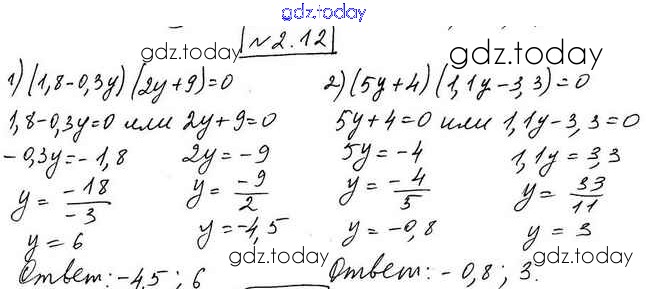 gdz.today
№2.12
gdz.today
gdz.today
1) (1,8-0,3y)(2y+9)=0
1,8-0,3y=0 или 2y+9=0
-0,3y=-1,8
2y=-9
y=-18/-3
y=-9/2
y=6
y=-4,5
Ответ: -4,5; 6
2) (5y+4)(1,1y-3,3)=0
5y+4=0 или 1,1y-3,3=0
5y=-4
1,1y=3,3
y=-4/5
y=33/11
y=-0,8
y=3
Ответ: -0,8; 3.
gdz.today
gdz.today
gdz.today
gdz.today